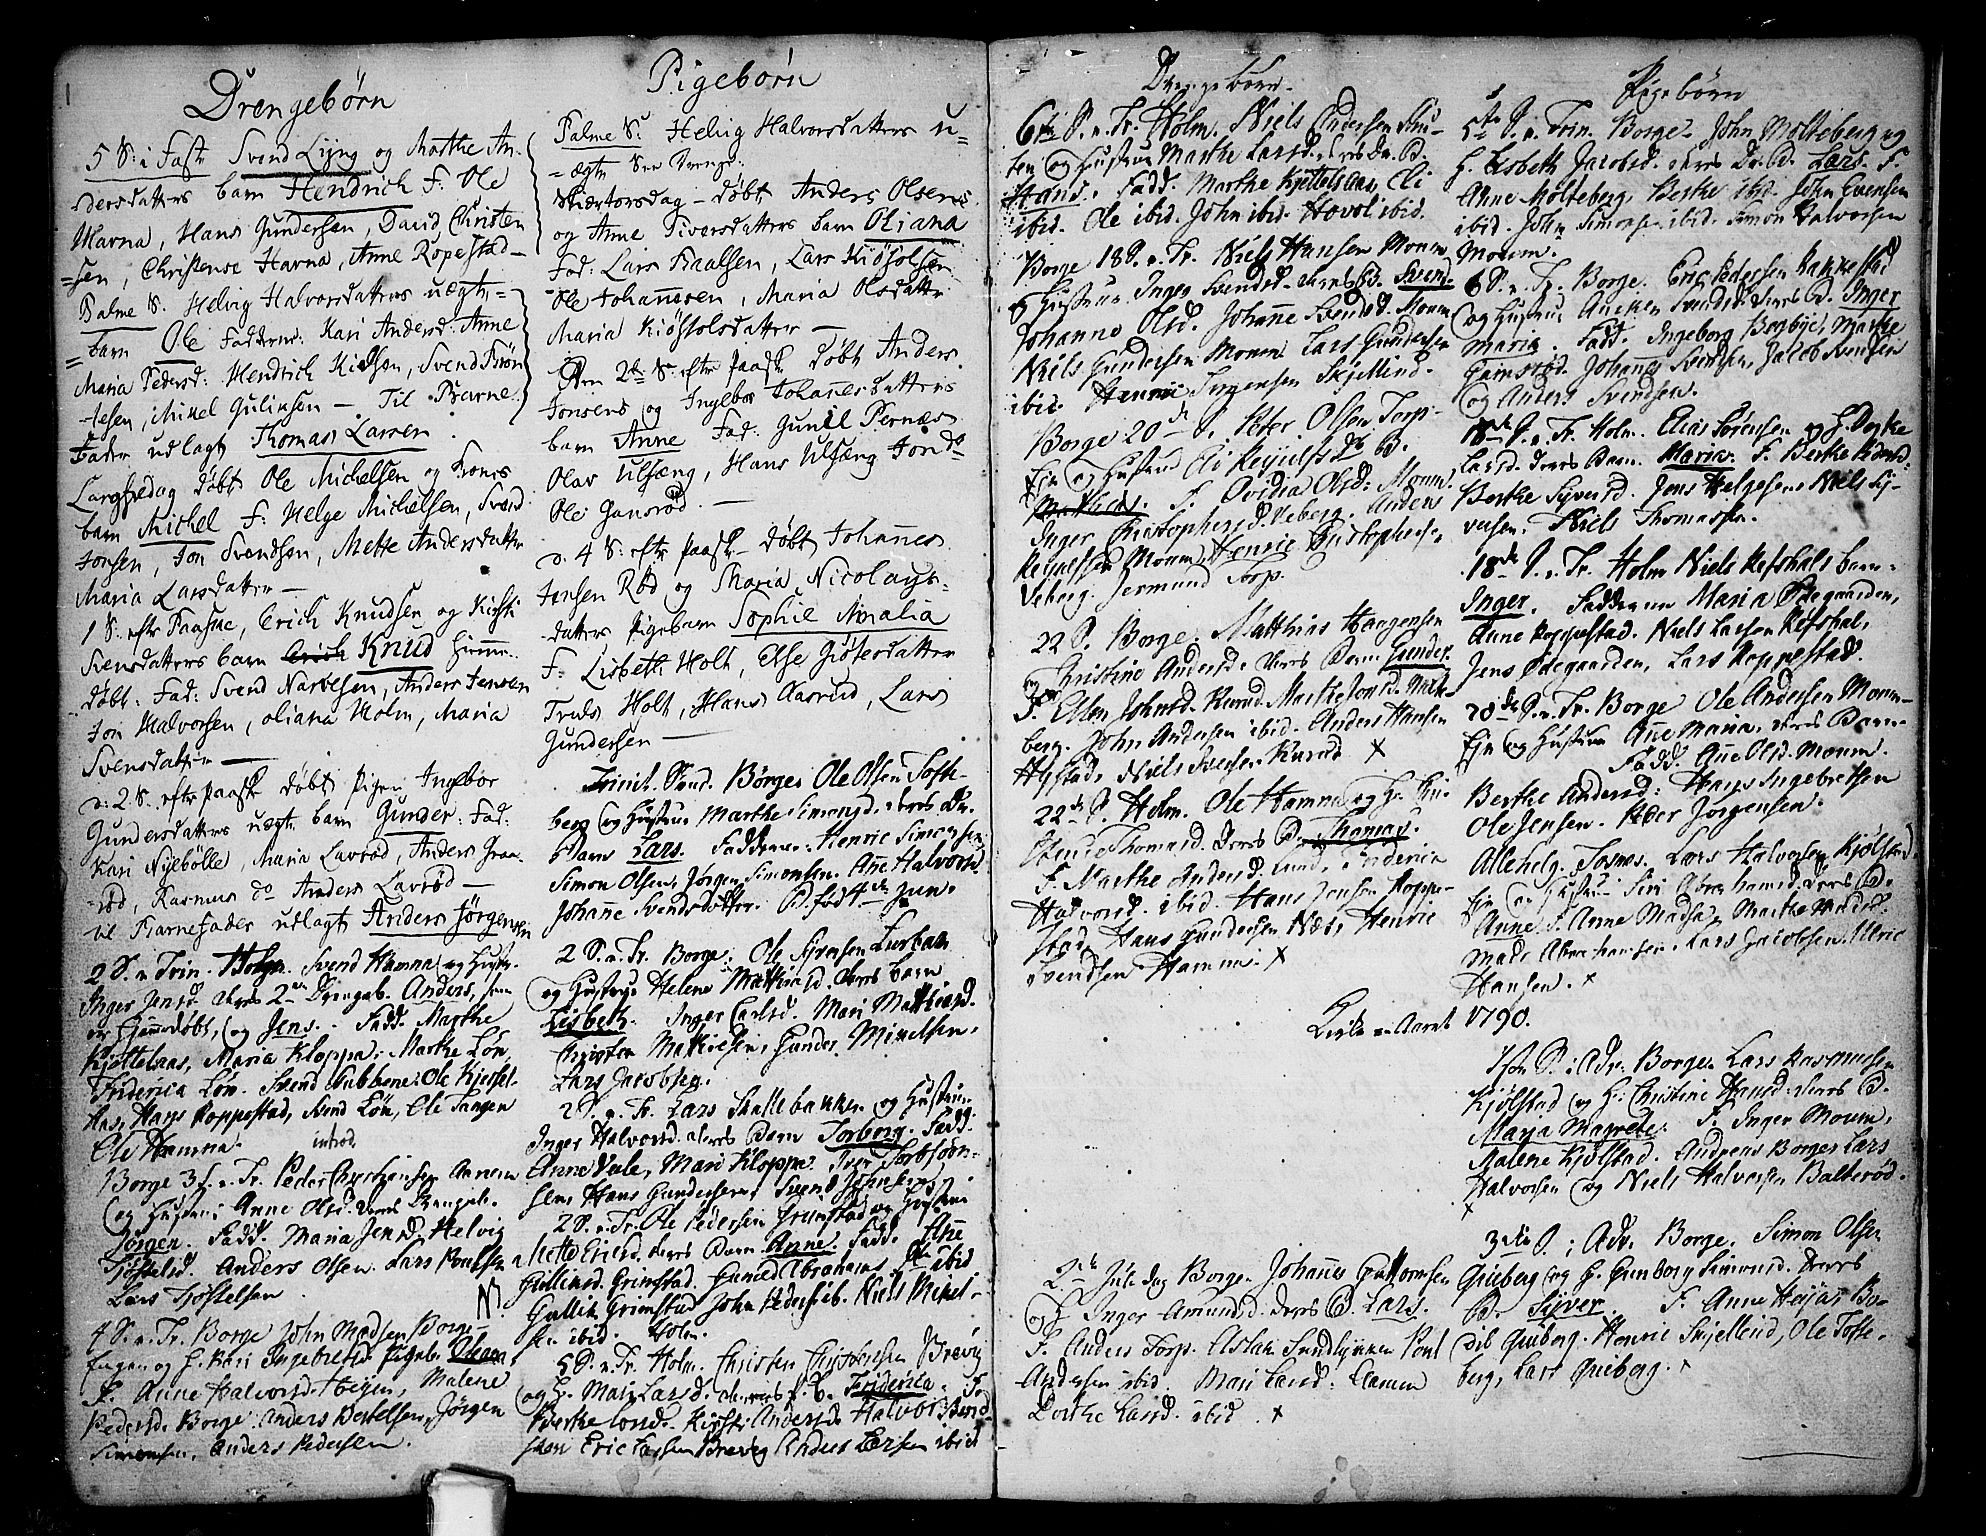 Drengebørn
5 S: i Fast Svend Lyng og Marthe An-
dersdatters barn Hendrich F: Ole
Harna, Hans Gundersen, David Christen
=sen, Christense Harna, Anne Ropestad
Palme S. Helvig Halvorsdatters uægte
=barn Ole Fadderne: Kari Andersd: Anne
Maria Pedersd: Hendrich Svend
Mikel Guliksen — Til Barne
Fader udlagt Thomas Larsen
Langfredag døbt Ole Michelsen og
barn Michel F: Helge Michelsen, Svend
Jonsen, Jon Svendsen, Mette Andersdatter
Maria Larsdatter —
1 S: eftr Paaske, Erich Knudsen og Kirsti
Svensdatters barn Knud hiemme
døbt: Fad: Svend Narvesen, Anders Jensen
Jon Halvorsen, Oliana Holm, Maria
Svensdatter —
D: 2 S. eftr Paask døbt pigen Ingebor
Gundersdatters uægte barn Gunder: Fad:
Kari Nyebølle, Maria Lavrød, Anders
rød, Rasmus do Anders Lavrød —
til Barnefader udlagt Anders Jørgensen
2 S. e. Trin. Holm. Svend Hamna og Hustr.
Inger Jensd. deres 2de Drengeb. Anders, som
er hjemmedøbt, og Jens. Fadd. Marthe
Kjettelaas, Maria Kloppa, Marthe Løn,
Friderica Løn. Svend Nubbene. Ole Kjettel-
aas, Hans Koppestad, Svend Løn, Ole Tangen
Ole Hamna. introd.
Borge 3 S. e. Tr. Peder Christiansen
og Hustru Anne Olsd. deres Drengeb.
Jørgen. Fadd. Maria Jensd. Helvig
Tjøstelsd. Anders Olsen. Lars Poulsen
Lars Tjøstelsen
4 S. e. Tr. Borge John Madsen Borge-
Engen og H. Kari Ingebretsd. Pigeb.
F. Anne Halvorsd. Heyen, Malene
Pedersd. Borge. Anders Bertelsen, Jørgen
Simonsen, Anders Pedersen.
Pigebørn
Palme S: Helvig Halvorsdatters u=
=ægte See Drenge:
Skiærtorsdag — døbt Anders Olsens
og Anne Siversdatters barn Oliana
Fad: Lars Paalsen, Lars Kiøstolsen
Ole Johannesen, Maria Olsdatter
Maria Kiøstolsdatter —
Den 2de S: eftr paask døbt Anders
Jonsens og Ingebor Johannesdatters
barn Anne Fad: Gunil Pernæs
Olav Ulfsæng, Hans Ulfsæng
Ole Gansrød. —
D. 4 S: eftr paask — døbt Johannes
Jensen Rød og Maria Nicolays-
datters pigebarn Sophie Amalia
F: Lisbeth Holt, Else Giøstesdatter
Truls Holt, Hans Aasrud, Lars
Gundersen —
Trinit. Sønd. Børge, Ole Olsen Tofte-
berg og Hustrue Marthe Simonsd. deres
Barn Lars. Fadderne. Henric Simonsen
Simon Olsen, Jørgen Simonsen. Ane Halvorsd.
Johane Svendsdotter. B. født 4de Jun.
2 S. e. Tr. Borge. Ole Syversen
og Hustrue Helene Mathiasd. deres Barn
Lisbeth. Inger Carlsd. Mari Mathiasd.
Christen Mathiesen, Gunder Mikelsen,
Lars Jacobsen.
2 S. e. Tr. Lars Skallebakken og Hustrue
Inger Halvorsd. deres Barn Torborg. Fadd.
Anne Vale, Mari Kloppa. Iver Torbjøn-
sen, Hans Gundersen, Svend Johnsen
2 S. e. Tr. Ole Pedersen Grimstad og Hustrue
Mette Ericsd. deres Barn Anne. Fadd. Ane
Gulliksd. Grimstad. Gunild Abrahams. Ole ibid
Gullik Grimstad John Peders. ib. Niels Mikel-
sen ibid. Holm.
5 S. e. Tr. Holm. Christen Christensen Brevig
og H. Mari Larsd. deres P. B. Friderica. F.
Berthe Lonsd. Kirsti Andersd. Halvor Svend-
sen Eric Larsen Brevig Anders Larsen ibid
Drengebørn.
6te S. e. Tr. Holm. Niels Andersen
og Hustrue Marthe Larsd. deres Dr. B.
Hans. Fadd. Marthe Kjettelaas, Eli
ibid. Ole ibid. John ibid. Hovel ibid.
Borge 18 S. e. Tr. Niels Hansen Moum
og Hustrue Inger Svendsd. deres B. Svend.
Johanne Olsd. Johanne Svendsd. Moum
Niels Gundersen Moum Lars Gundersen
ibid. Henric Jørgensen Skjellind.
Borge 20de S. Peter Olsen Torp-
Eje og Hustrue Eli Keyulfsd. B.
Mathias. F. Ovidia Olsd. Moum,
Inger Christophersd. Veberg. Anders
Keyulfsen Moum, Henric Christophersen
Veberg. Jermund Torp.
22 S. Borge. Matthias Haagensen
og Christine Andersd. deres Barn. Gunder.
F. Ellen Johnsd. Kurød. Marthe
berg. John Andersen ibid. Anders Hansen
Niels Svensen Kurød ×
22de S. Holm. Ole Hamna og H.
Thomasd. Deres B. Thomas.
F. Marthe Andersd. Lund, Friderica
Halvorsd. ibid. Hans Jensen Koppe-
stad, Hans Gundersen Næs, Henric
Svendsen Hamna. ×
Kirke-Aaret 1790.
2de Jule dag Borge. Johannes Guttormsen
og H. Inger Amundsd. Deres B. Lars.
F. Anders Torp. Aslak Sundlykken Poul
Andersen ibid. Mari Larsd.
Dorthe Larsd. ibid. ×
Pigebørn
5te S. e. Trin. Borge. John Molteberg og
H. Lisbeth Jacobsd. deres Dr. B. Lars. F.
Anne Molteberg, Berthe ibid. John Evensen
ibid. John Simonsen ibid. Simon Halvorsen
Moum.
6 S. e. Tr. Borge. Eric Pedersen Bakkestad
og Hustrue Anichen Svendsd. deres B. Inger
Maria. Fadd. Ingeborg Borgbye, Marthe
Gamsrød. Johannes Svendsen, Jacob Svendsen
og Anders Svendsen.
18de S. e. Tr. Holm. Elias Sørensen og H. Dorthe
Larsd. deres Barn. Maria. F. Berthe
Berthe Syversd. Jens Helgesen, Niels Sy-
versen. Niels Thomassen.
18de S. e. Tr. Holm Niels Refshals barn.
Inger. Fadderne Maria Ødegaarden,
Anne Koppestad. Niels Larsen Refshal,
Jens Ødegaarden, Lars Koppestad.
20de S. e. Tr. Borge Ole Andersen Moum-
Eje og Hustrue Ane Maria, deres Barn.
Fadd. Ane Olsd. Moum.
Berthe Andersd: Hans Ingebretsen
Ole Jensen. Peder Jørgensen.
Allehelg. Torsnes. Lars Halvorsen Kjølstad
Eje og Hustrue Siri Abrahamsd. deres B.
Anne. F. Anne Madsd. Marthe Madsd.
Mads Abrahamsen. Lars Jacobsen. Ulric
Hansen. ×
1ste S. i Adv. Borge. Lars Rasmusen
Kjølstad og H. Christine Hansd. deres B.
Maria Magrete. F. Inger Moum,
Malene Kjølstad. Andreas Borge, Lars
Halvorsen og Niels Halvorsen Balterød.
×
3die S. i Adv. Borge. Simon Olsen
Grieberg og H. Gunborg Simonsd. Deres
B. Syver. F. Anne Heyen, Bo-
dil Grieberg. Henric Skjellind, Ole Tofte-
berg, Lars Grieberg. ×